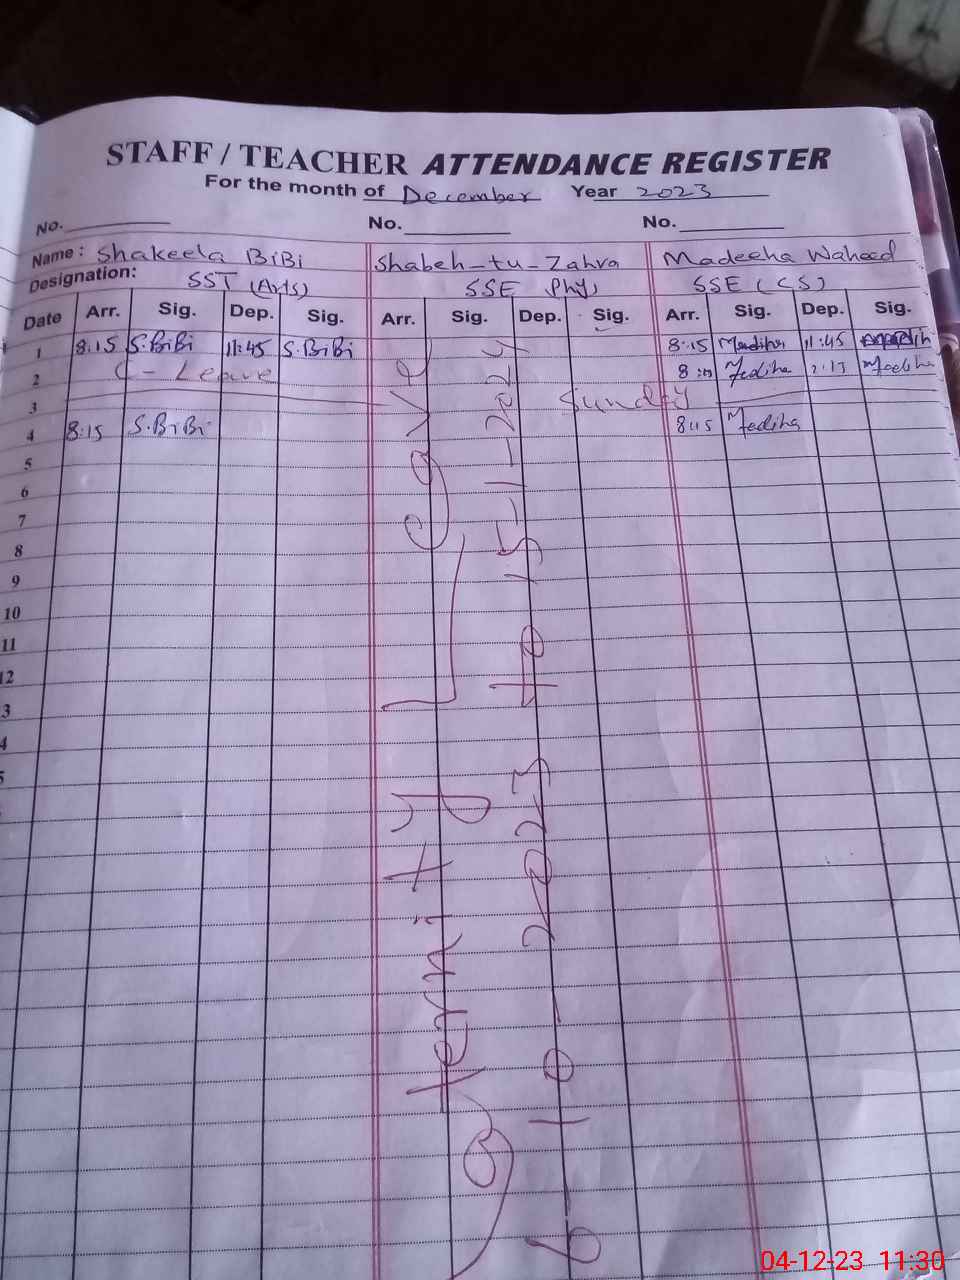 STAFF / TEACHER ATTENDANCE REGISTER
For the month of December Year 2023
No. No. No.
Name: Shakeela BiBi Shabeh-tu-Zahra Madeeha Waheed
Designation: SST (Arts) SSE Phy SSE (CS)
Date Arr. Sig. Dep. Sig. Arr. Sig. Dep. Sig. Arr. Sig. Dep. Sig.
1 8:15 S.BiBi 11:45 S.BiBi 8:15 Madiha 11:45
2 C - Leave Madiha Madiha
3 Sunday
4 8:15 S.BiBi 8:15 Madiha
5
6
7
8
9
10
11
12
3
4
5
aternity Leave
10-2023 to 15-1-2024
04-12-23 11:30